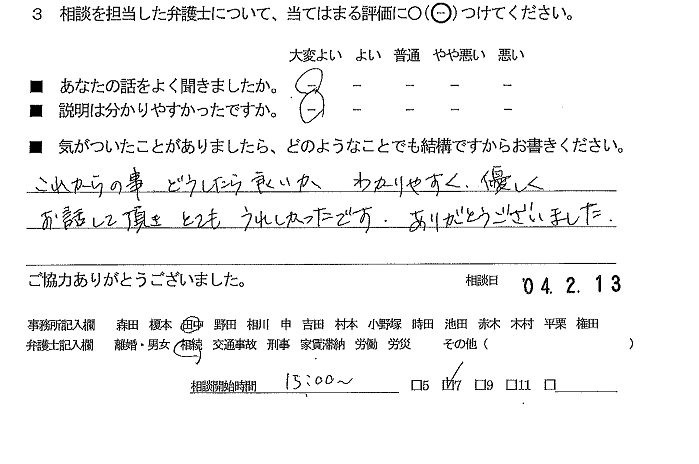 3 相談を担当した弁護士について、当てはまる評価に○(⊖)つけてください。
大変よい よい 普通 やや悪い 悪い
■ あなたの話をよく聞きましたか。 － － － － －
■ 説明は分かりやすかったですか。 － － － － －
■ 気がついたことがありましたら、どのようなことでも結構ですからお書きください。
これからの事 どうしたら良いか、わかりやすく、優しく
お話して頂き とても うれしかったです. ありがとうございました.
ご協力ありがとうございました。 相談日 '04.2.13
事務所記入欄 森田 榎本 田中 野田 相川 申 吉田 村本 小野塚 時田 池田 赤木 木村 平栗 権田
弁護士記入欄 離婚・男女 相続 交通事故 刑事 家賃滞納 労働 労災 その他( )
相談開始時間 15:00〜 □5 ☑7 □9 □11 □